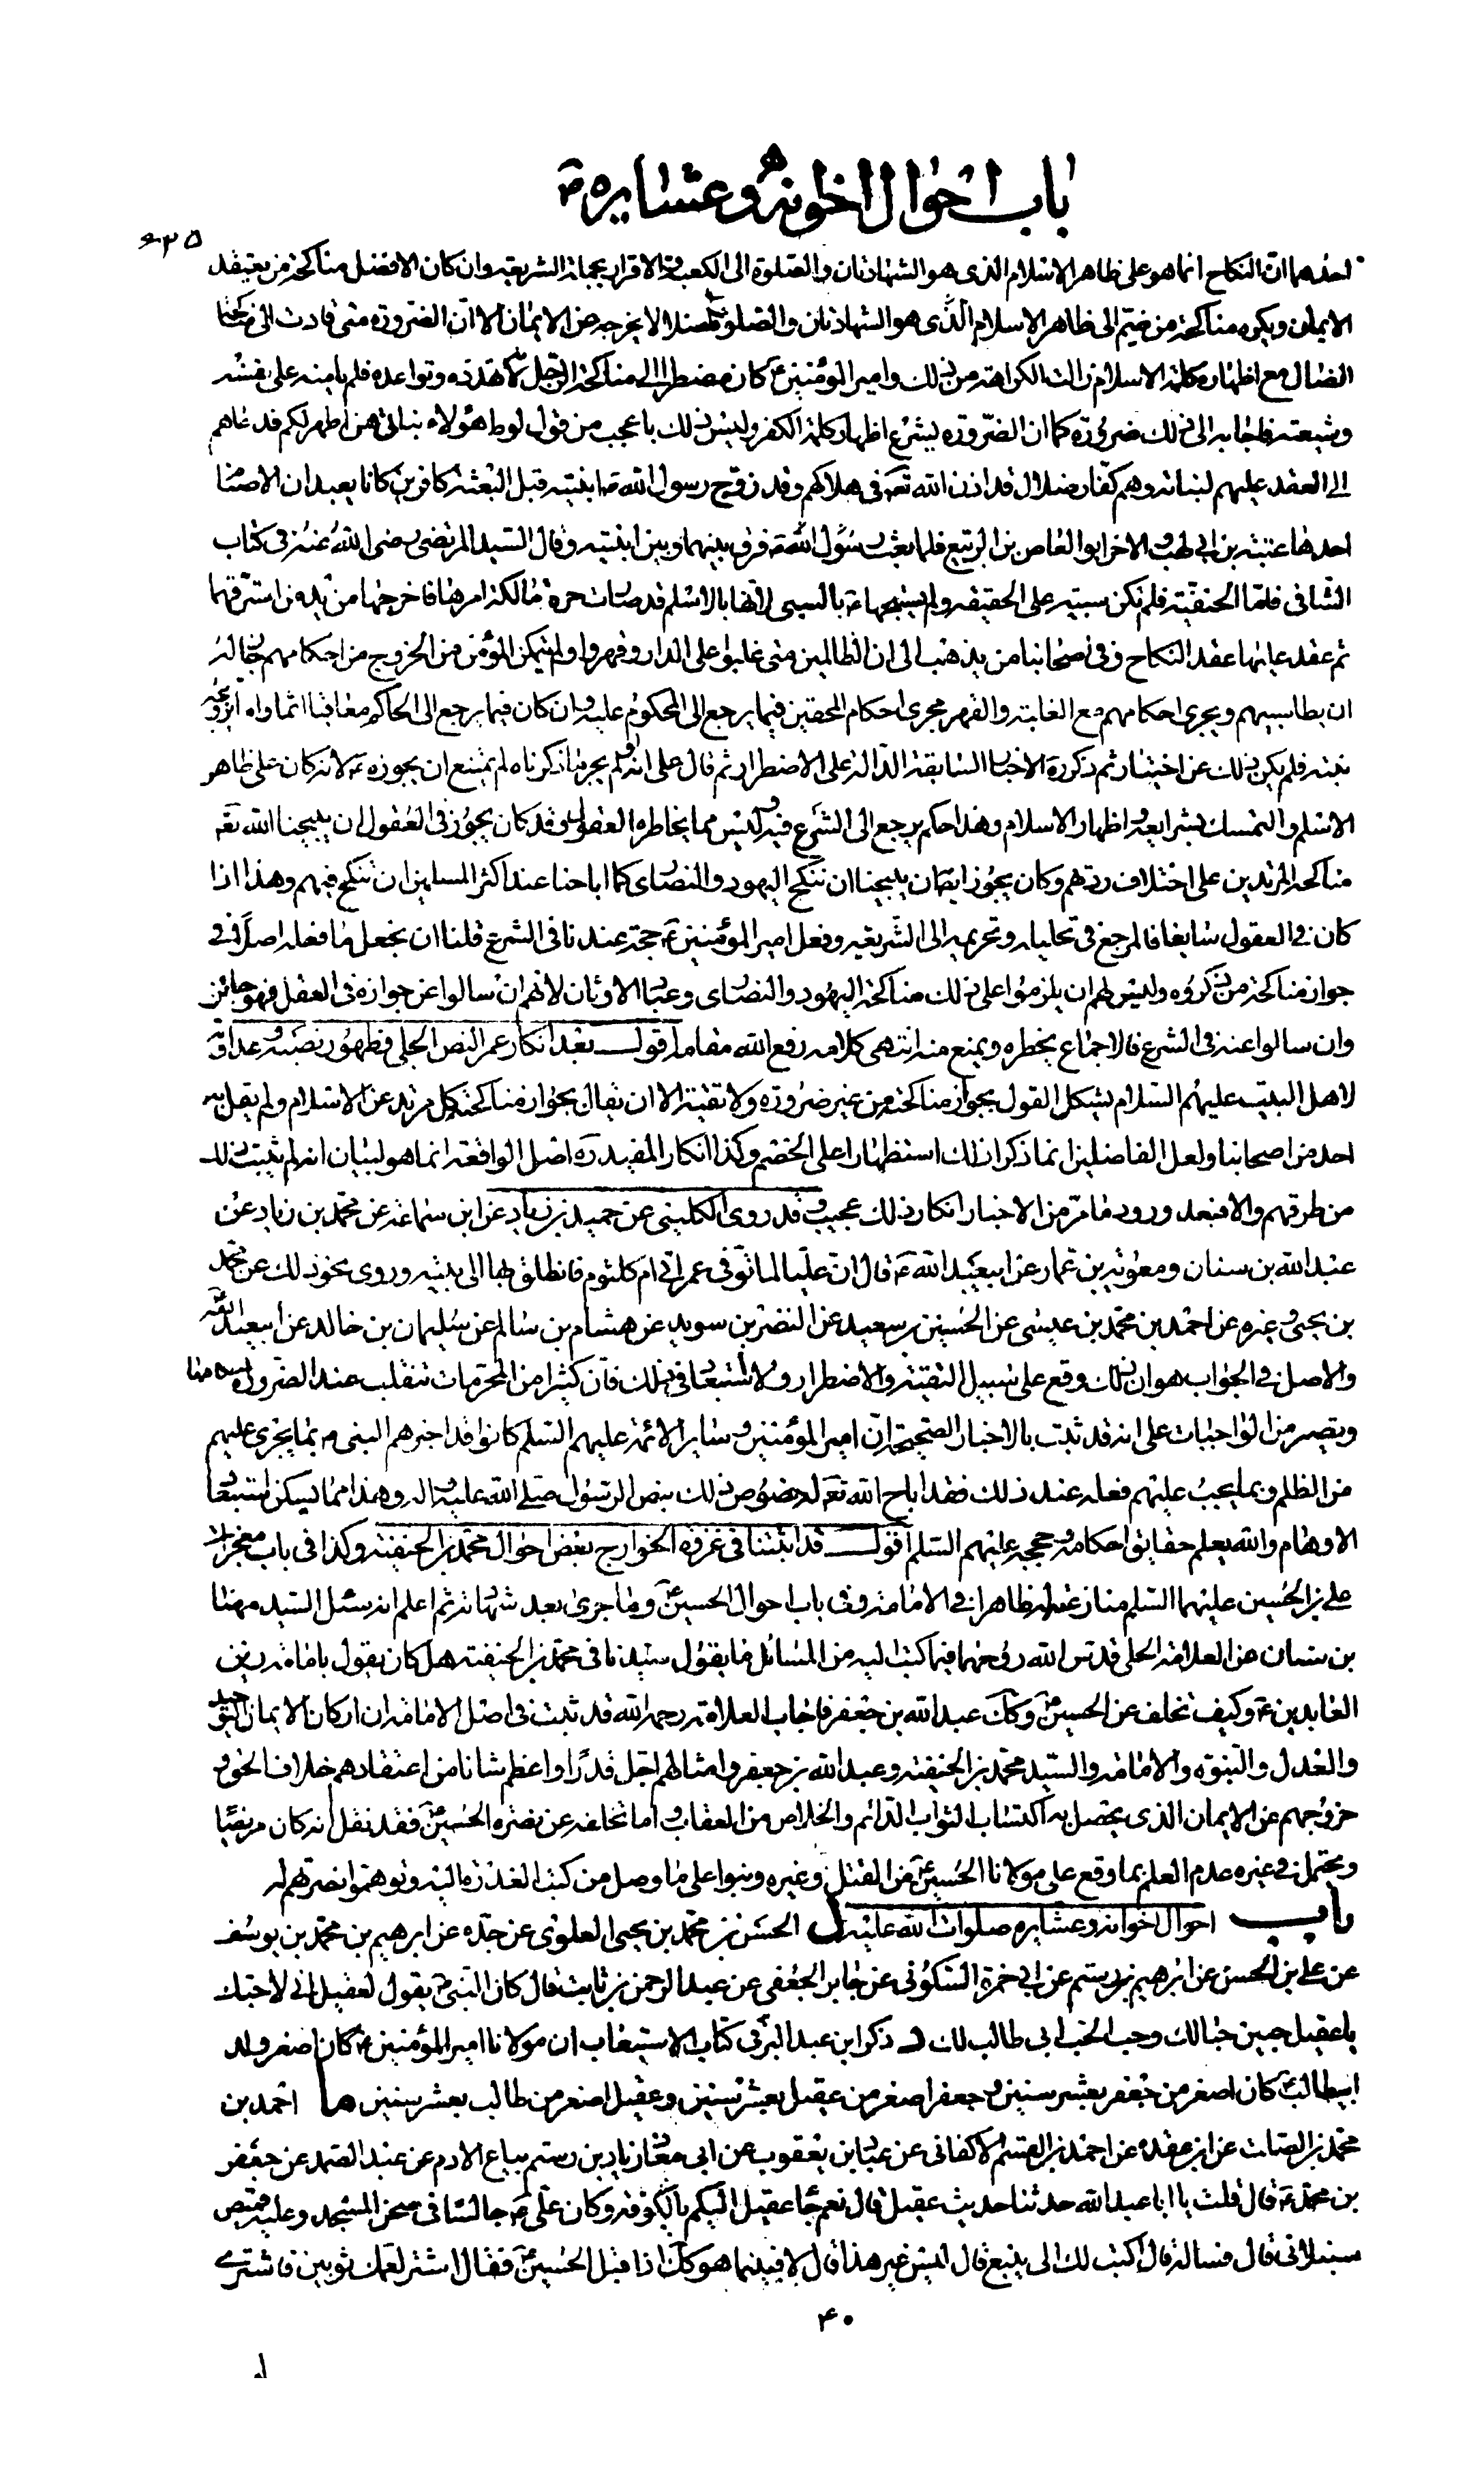 باب احوال اخوانه و عشايره ص
٦٣٥
احدهما ان النكاح انما هو على ظاهر الاسلام الذى هو الشهادتان والصلوة الى الكعبة والاقرار بجملة الشريعة وان كان الافضل مناكحة من يعتقد
الايمان ويكره مناكحة من ضم الى ظاهر الاسلام الذى هو الشهادتان والصلوة ضلالا لا يخرجه عن الايمان الا ان الضرورة متى قادت الى مناكحة
الضال مع اظهاره كلمة الاسلام زالت الكراهة من ذلك وامير المؤمنين ع كان مضطرا الى مناكحة الرجل لانه تهدده وتواعده فلم يامنه على نفسه
وشيعته فاجابه الى ذلك ضرورة كما ان الضرورة يشرع اظهار كلمة الكفر وليس ذلك باعجب من قول لوط هؤلاء بناتى هن اطهر لكم فدعاهم
الى العقد عليهم لبناته وهم كفار ضلال قد اذن الله تعه فى هلاكهم وقد زوج رسول الله ص ابنتيه قبل البعثة كافرين كانا يعبدان الاصنام
احدهما عتبة بن ابى لهب والاخر ابو العاص بن الربيع فلما بعث رسول الله ص فرق بينهما وبين ابنتيه وقال السيد المرتضى رضى الله عنه فى كتاب
الشافى فاما الحنفية فلم تكن سبية على الحقيقة ولم يستبحها ع بالسبى لانها بالاسلم قد صارت حرة مالكة امرها فاخرجها من يد من استرقها
ثم عقد عليها عقد النكاح وفى اصحابنا من يذهب الى ان الظالمين متى غلبوا على الدار وقهروا ولم يتمكن المؤمن من الخروج من احكامهم جاز له
ان يطأ سبيهم ويجرى احكامهم مع الغلبة والقهر مجرى احكام المحقين فيما يرجع الى المحكوم عليه وان كان فيما يرجع الى الحاكم معاقبا اثما واما تزويجه
بنته فلم يكن ذلك عن اختيار ثم ذكر ره الاخبار السابقة الدالة على الاضطرار ثم قال على انه لو لم يجر ما ذكرناه لم يمتنع ان يجوزه ع لانه كان على ظاهر
الاسلم والتمسك بشرايعه واظهار الاسلام وهذا حكم يرجع الى الشرع فيه وليس مما يخاطره العقول وقد كان يجوز فى العقول ان يبيحنا الله تعه
مناكحة المرتدين على اختلاف ردتهم وكان يجوز ايضا ان يبيحنا ان ننكح اليهود والنصارى كما اباحنا عند اكثر المسلمين ان ننكح فيهم وهذا اذا
كان فى العقول سايغا فالمرجع فى تحليله وتحريمه الى الشريعة وفعل امير المؤمنين ع حجة عندنا فى الشرع فلنا ان نجعل ما فعله اصلا فى
جواز مناكحة من ذكروه وليس لهم ان يلزموا على ذلك مناكحة اليهود والنصارى وعباد الاوثان لانهم ان سالوا عن جوازه فى العقل فهو جائز
وان سالوا عنه فى الشرع فالاجماع يحظره ويمنع منه انتهى كلامه رفع الله مقامه اقول بعد انكار عمر النص الجلى وظهور نصبه وعداوته
لاهل البيت عليهم السلام يشكل القول بجواز مناكحته من غير ضرورة ولا تقية الا ان يقال بجواز مناكحة كل مرتد عن الاسلام ولم يقل به
احد من اصحابنا ولعل الفاضلين انما ذكرا ذلك استظهارا على الخصم وكذا انكار المفيد ره اصل الواقعة انما هو لبيان انه لم يثبت ذلك
من طرقهم والا فبعد ورود ما مر من الاخبار انكار ذلك عجيب وقد روى الكلينى عن حميد بن زياد عن ابن سماعة عن محمد بن زياد عن
عبد الله بن سنان ومعوية بن عمار عن ابيعبد الله ع قال ان عليا لما توفى عمر اتى ام كلثوم فانطلق بها الى بيته وروى نحو ذلك عن محمد
بن يحيى وغيره عن احمد بن محمد بن عيسى عن الحسين بن سعيد عن النضر بن سويد عن هشام بن سالم عن سليمان بن خالد عن ابيعبد الله ع
والاصل فى الجواب هو ان ذلك وقع على سبيل التقية والاضطرار ولا استبعاد فى ذلك فان كثيرا من المحرمات تنقلب عند الضرورة احكامها
وتصير من الواجبات على انه قد ثبت بالاخبار الصحيحة ان امير المؤمنين وساير الائمة عليهم السلم كانوا قد اخبرهم النبى ص بما يجرى عليهم
من الظلم وبما يجب عليهم فعله عند ذلك فقد اباح الله تعه له خصوص ذلك بنص الرسول صلى الله عليه واله وهذا مما يسكن استبعاد
الاوهام والله يعلم حقايق احكامه وحججه عليهم السلم اقول قد اثبتنا فى غزوة الخوارج بعض احوال محمد بن الحنفية وكذا فى باب معجزات
على بن الحسين عليهما السلم منازعته له ظاهرا فى الامامة وفى باب احوال الحسين ع وما جرى بعد شهادته ثم اعلم انه سئل السيد مهنا
بن سنان عن العلامة الحلى قدس الله روحهما فيما كتب اليه من المسائل ما يقول سيدنا فى محمد بن الحنفية هل كان يقول بامامة زين
العابدين ع وكيف تخلف عن الحسين ع وكك عبد الله بن جعفر فاجاب العلامة رحمه الله قد ثبت فى اصل الامامة ان اركان الايمان التوحيد
والعدل والنبوة والامامة والسيد محمد بن الحنفية وعبد الله بن جعفر وامثالهم اجل قدرا واعظم شانا من اعتقادهم خلاف الحق و
خروجهم عن الايمان الذى يحصل به اكتساب الثواب الدائم والخلاص من العقاب واما تخلفه عن نصرة الحسين ع فقد نقل انه كان مريضا
ويحتمل فى غيره عدم العلم بما وقع على مولانا الحسين ع من القتل وغيره وبنوا على ما وصل من كتب الغدرة اليه وتوهموا نصرتهم له
باب احوال اخوانه وعشايره صلوات الله عليه ل الحسن بن محمد بن يحيى العلوى عن جده عن ابرهيم بن محمد بن يوسف
عن على بن الحسن عن ابرهيم بن رستم عن ابى حمزة السكونى عن جابر الجعفى عن عبد الرحمن بن ثابت قال كان النبى ص يقول لعقيل انى لاحبك
يا عقيل حبين حبا لك وحبا لحب ابى طالب لك د ذكر ابن عبد البر فى كتاب الاستيعاب ان مولانا امير المؤمنين ع كان اصغر ولد
ابيطالب كان اصغر من جعفر بعشر سنين وجعفر اصغر من عقيل بعشر سنين وعقيل اصغر من طالب بعشر سنين ما احمد بن
محمد بن الصلت عن ابن عقدة عن احمد بن القسم الاكفانى عن عباد بن يعقوب عن ابى معاذ زياد بن رستم بياع الادم عن عبد الصمد عن جعفر
بن محمد ع قال قلت يا ابا عبد الله حدثنا حديث عقيل قال نعم جاء عقيل اليكم بالكوفة وكان على ع جالسا فى صحن المسجد وعليه قميص
سنبلانى قال فساله قال اكتب لك الى ينبع قال ليس غير هذا قال لا فبينما هو كك اذا قبل الحسين ع فقال اشتر لعمك ثوبين فاشترى
٤٠
له